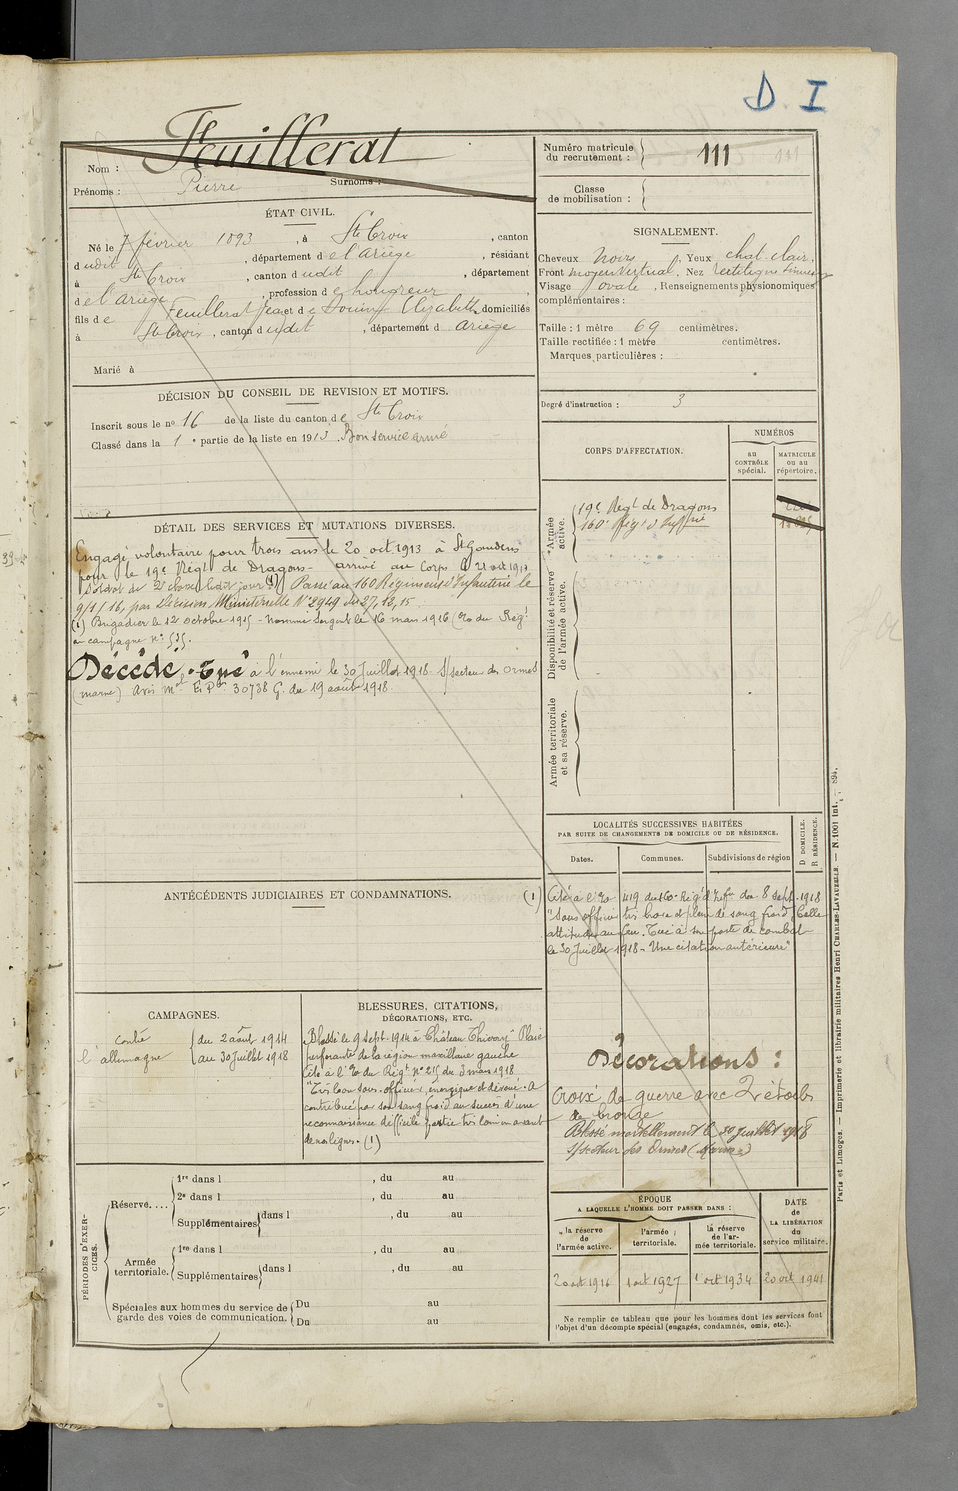 D. I
Feuillerat
Nom :
Prénoms : Pierre Surnoms :
Numéro matricule
du recrutement : 111
Classe
de mobilisation :
ÉTAT CIVIL.
Né le 7 février 1893, à Ste Croix, canton
dudit, département de l'Ariège, résidant
à Ste Croix, canton dudit, département
de l'Ariège, profession de hongreur,
fils de Feuillerat Jean et de Elizabeth, domiciliés
à Ste Croix, canton dudit, département d Ariège
Marié à
SIGNALEMENT.
Cheveux noirs, Yeux chat. clair,
Front moyen vertical, Nez rectiligne sinueux
Visage ovale, Renseignements physionomiques
complémentaires :
Taille : 1 mètre 69 centimètres.
Taille rectifiée : 1 mètre centimètres.
Marques particulières :
Degré d'instruction : 3
DÉCISION DU CONSEIL DE REVISION ET MOTIFS.
Inscrit sous le no 16 de la liste du canton de Ste Croix
Classé dans la 1e partie de la liste en 1913. Bon service armé
CORPS D'AFFECTATION.
NUMÉROS
au
CONTRÔLE
spécial.
MATRICULE
ou au
répertoire.
Armée
active.
19e Regt de Dragons
160e Rég t d'Inf rie
Disponibilité et réserve
de l'armée active.
Armée territoriale
et sa réserve.
DÉTAIL DES SERVICES ET MUTATIONS DIVERSES.
Engagé volontaire pour trois ans le 20 oct. 1913 à St Gaudens
pour le 19e Régt de Dragons - arrivé au Corps le 21 oct 1913
Soldat de 2e classe ledit jour (1) Passé au 160 Régiment d'Infanterie le
9/1/16, par Décision Ministérielle No 2949 du 27, 12, 15.
(1) Brigadier le 12 octobre 1915 - Nommé Sergent le 16 mars 1916 (Oo du Regt
en campagne no 535.
Décédé. Tué à l'ennemi le 30 Juillet 1918 S/secteur des Ormes
(marne) Avis Mel Ei Pa 30738 G. du 19 août 1918.
LOCALITÉS SUCCESSIVES HABITÉES
PAR SUITE DE CHANGEMENTS DE DOMICILE OU DE RÉSIDENCE.
Dates.
Communes.
Subdivisions de région
D DOMICILE.
R RÉSIDENCE.
(1) Cité à l'Oo 419 du 160e Rég d'Infie du 8 Sept. 1918
"Sous officier très brave et plein de sang froid, belle
attitude au feu. Tué à son poste de combat
le 30 Juillet 1918 - Une citation antérieure"
ANTÉCÉDENTS JUDICIAIRES ET CONDAMNATIONS.
CAMPAGNES.
Contre
l'allemagne
du 2 août 1914
au 30 Juillet 1918
BLESSURES, CITATIONS,
DÉCORATIONS, ETC.
Blessé le 9 Sept. 1914 à Château Thierry - Plaie
perforante de la région maxillaire gauche
Cité à l'Oo du Régt No 215 du 3 mars 1918
"Très bon sous-officier, énergique et dévoué. A
contribué par son sang froid au succès d'une
reconnaissance difficile partie très loin en avant
de nos lignes. (1)
Décorations :
Croix de guerre avec 2 étoiles
de bronze
Blessé mortellement le 30 juillet 1918
S/Secteur des Ormes (Marne)
PÉRIODES D'EXER-
CICES.
Réserve....
1re dans l , du au
2e dans l , du au
Supplémentaires dans l , du au
Armée
territoriale.
1re dans l , du au
Supplémentaires dans l , du au
Spéciales aux hommes du service de
garde des voies de communication.
Du au
Du au
ÉPOQUE
A LAQUELLE L'HOMME DOIT PASSER DANS :
la réserve
de
l'armée active.
l'armée
territoriale.
la réserve
de l'ar-
mée territoriale.
DATE
de
LA LIBÉRATION
du
service militaire.
20 oct 1916
1 oct 1927
1 oct 1934
20 oct. 1941
Ne remplir ce tableau que pour les hommes dont les services font
l'objet d'un décompte spécial (engagés, condamnés, omis, etc.).
Paris et Limoges. — Imprimerie et librairie militaires Henri CHARLES-LAVAUZELLE. — N. 1001 int. — 894.